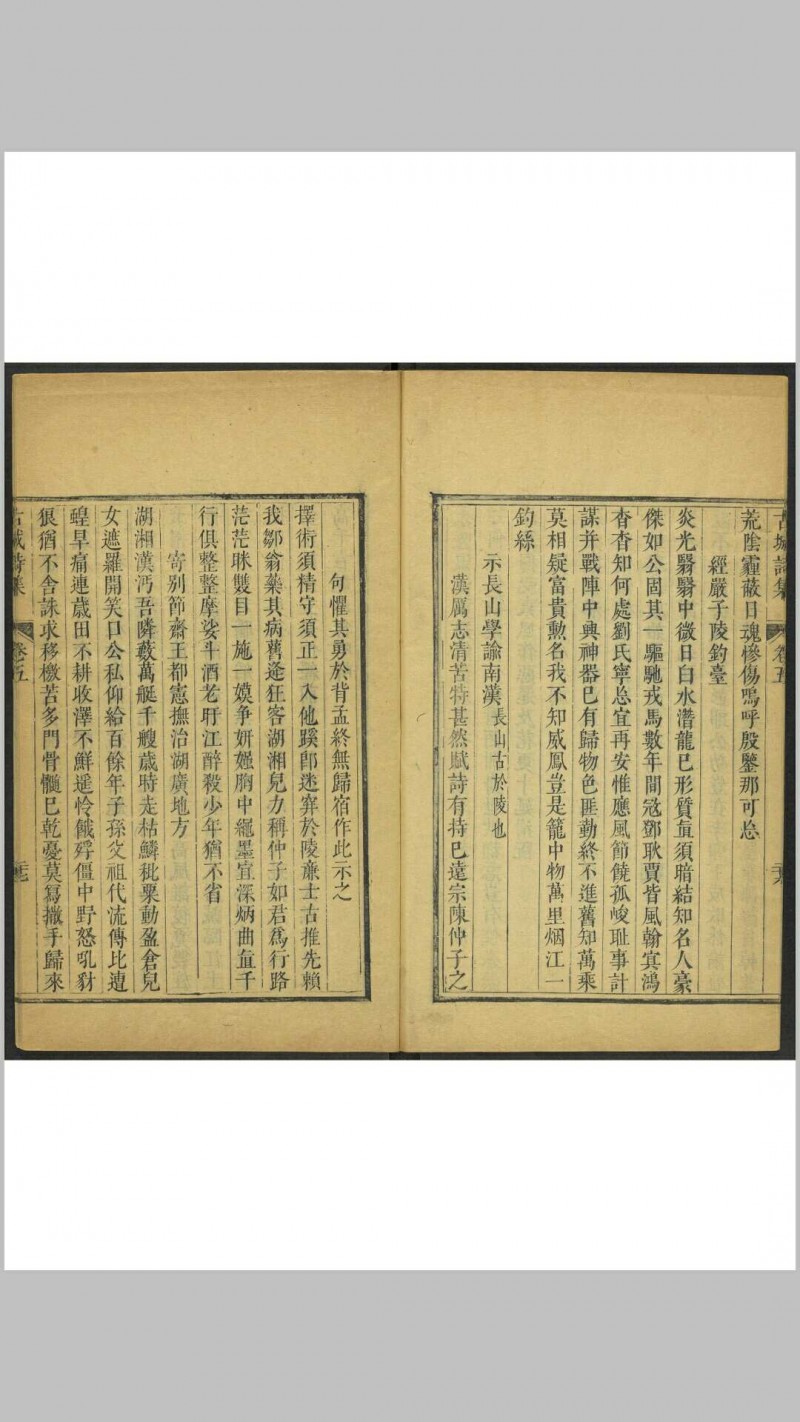 古城詩集 卷五
荒陰霾蔽日魂慘傷嗚呼殷鑒那可忘
經嚴子陵釣臺
炎光翳翳中微日白水潛龍已形質直須暗結知名人豪
傑如公固其一驅馳戎馬數年間冠鄧耿賈皆風翰賓鴻
杳杳知何處劉氏寧忘宜再安惟應風節饒孤峻耻事計
謀并戰陣中興神器已有歸物色匪動終不進舊知萬乘
莫相疑富貴勲名我不知威鳳豈是籠中物萬里烟江一
釣絲
示長山學諭南漢長山古於陵也
漢厲志清苦特甚然賦詩有持已遠宗陳仲子之
句懼其勇於背孟終無歸宿作此示之
擇術須精守須正一入他蹊卽迷穽於陵亷士古推先賴
我鄒翁藥其病舊逢狂客湖湘兒力稱仲子如君爲行路
茫茫眯雙目一施一嫫争妍媸胸中繩墨宜深炳曲直千
行俱整整摩娑斗酒老盱江醉殺少年猶不省
寄别節齋王都憲撫治湖廣地方
湖湘漢沔吾隣藪萬艇千艘歲時走枯鱗秕粟動盈倉兒
女遮羅開笑口公私仰給百餘年子孫父祖代流傳比遭
蝗旱痛連歲田不耕收澤不鮮遥怜餓殍僵中野怒吼豺
狼猶不舍誅求移檄苦多門骨髓已乾憂莫寫撒手歸來
古城詩集 卷五